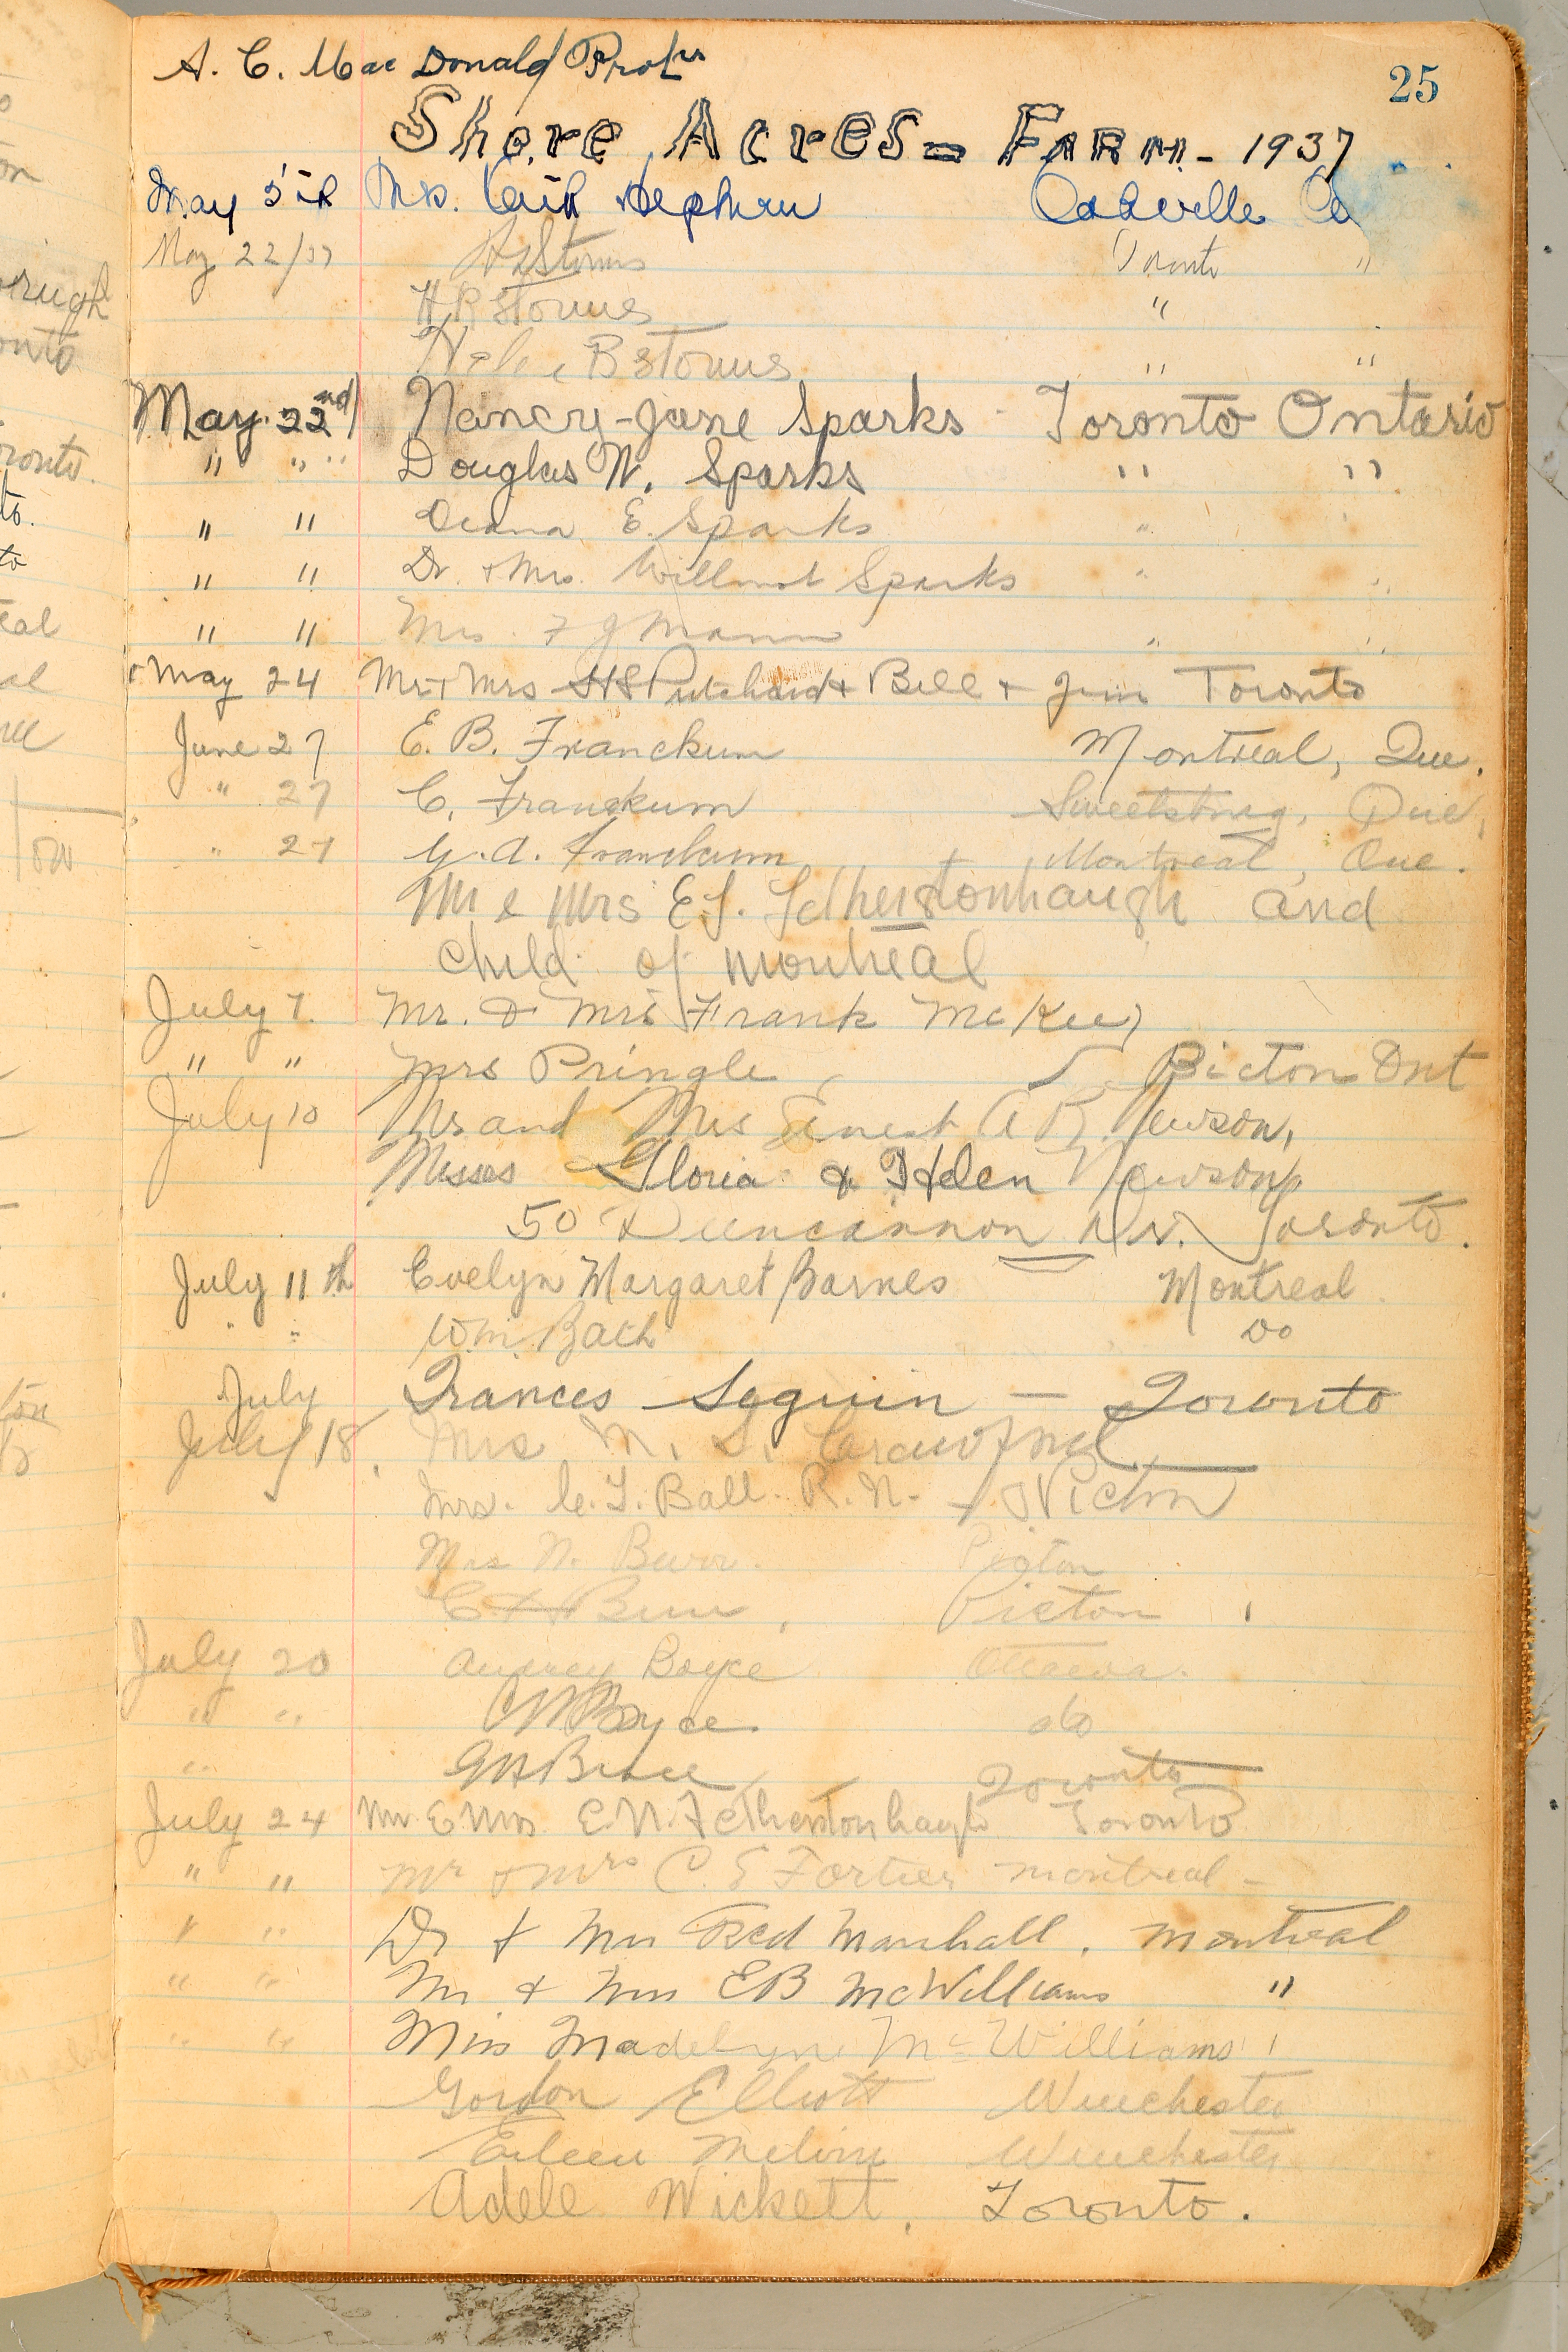 A. C. Mac Donald Prop's
25
Shore Acres - Farm - 1937
May 5th Mrs. Hepburn Oakville
May 22/37 Storms Toronto "
H R Storms "
B Storms " "
May 22nd Nancy-Jane Sparks - Toronto Ontario
" " " Douglas W. Sparks " "
" " E. Sparks "
" " Dr. + Mrs. Willmot Sparks " "
" " Mrs. F J Mann " "
May 24 Mr + Mrs H S Pritchard + Bill + Jim Toronto
June 27 E. B. Franckum Montreal, Que.
" 27 C. Franckum Sweetsburg, Que.
" 27 G. A. Franckum Montreal, Que.
Mr & Mrs E. J. Fetherstonhaugh and
child of Montreal
July 7. Mr. & Mrs Frank McKee
" " Mrs Pringle Picton Ont
July 10 Mr and Mrs Ernest A R. Newson,
Misses Gloria & Helen Newson,
50 Duncannon Dr. Toronto.
July 11th Evelyn Margaret Barnes Montreal
" " Wm. Bach Do
July Frances Seguin — Toronto
July 18, Mrs N. S. Crawford
Mrs. C. F. Ball. R. N. Picton
Mrs N. Burr. Picton
Burr, Picton
July 20 Audrey Boyce Ottawa.
" " Boyce. do
" Toronto
July 24 Mr & Mrs E. N. Fetherstonhaugh Toronto
" " Mr & Mrs C. E Fortier Montreal -
" " Dr & Mrs Fred Marshall. Montreal
" " Mr & Mrs EB McWilliams "
" " Miss Madelyne McWilliams "
Gordon Elliott Winchester
Eileen Melvin Winchester
Adele Wickett, Toronto.